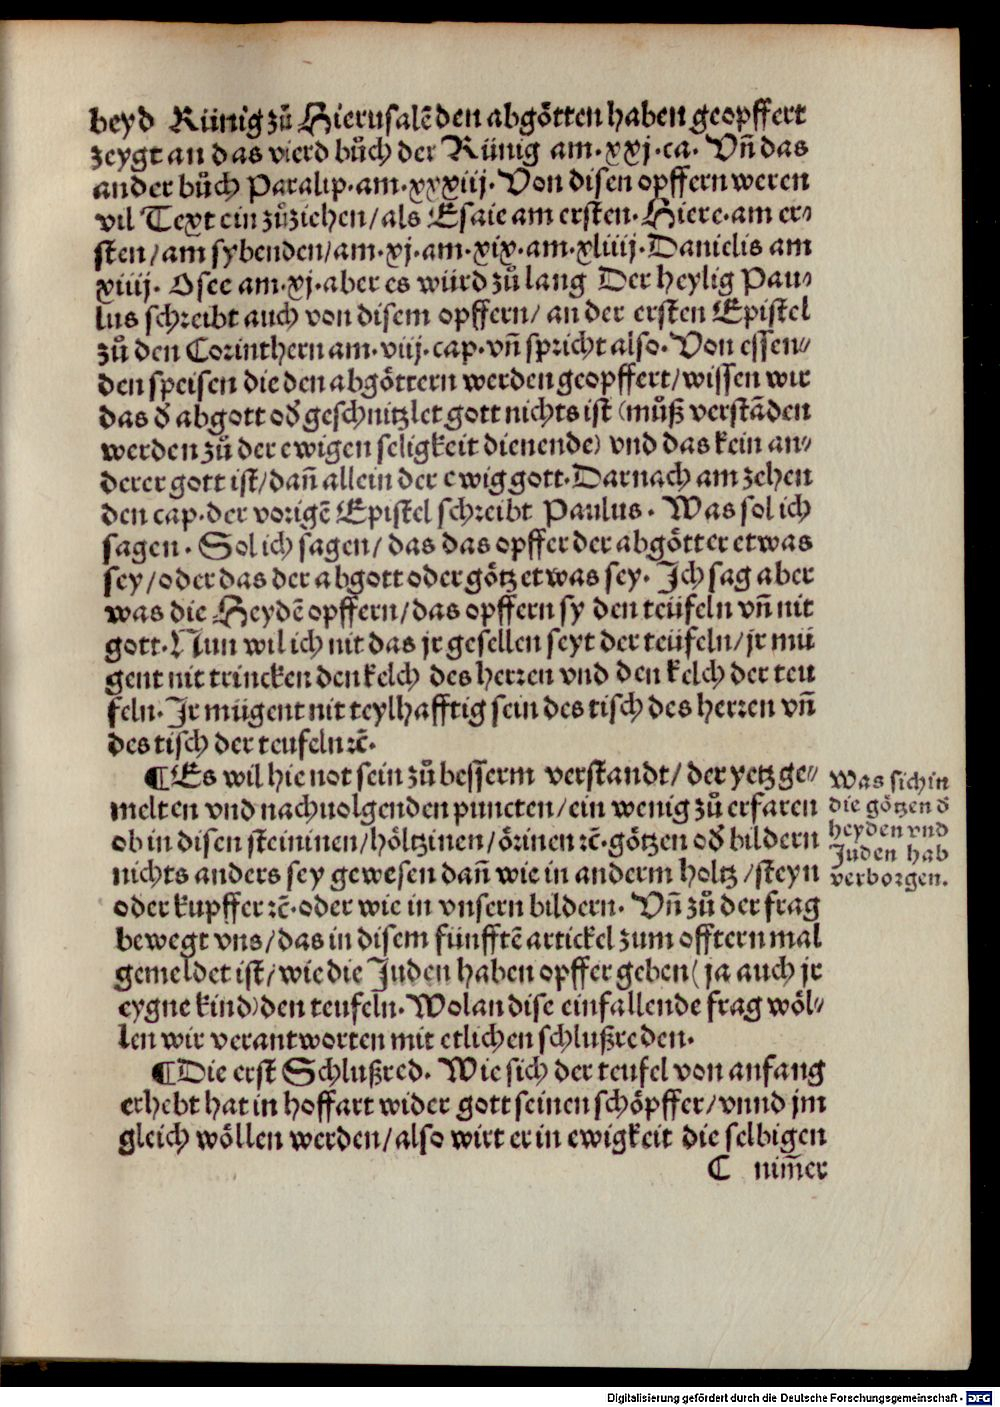 beyd Künig zů Hierusalē den abgötten haben geopffert
zeygt an das vierd bůch der Künig am·xxj·ca· Vñ das
ander bůch Paralip·am·xxxiij· Von disen opffern weren
vil Text ein zůziehen/als Esaie am ersten· Hiere·am er⸗
sten/am sybenden/am·xj·am·xix·am·xliiij·Danielis am
xiiij· Osee am·xj·aber es würd zů lang Der heylig Pau⸗
lus schreibt auch von disem opffern/ an der ersten Epistel
zů den Corinthern am·viij·cap·vñ spricht also· Von essen⸗
den speisen die den abgöttern werden geopffert/wissen wir
das d̕ abgott od̕ geschnitzlet gott nichts ist (můß verstāden
werden zů der ewigen seligkeit dienende) vnd das kein an⸗
derer gott ist/dañ allein der ewig gott·Darnach am zehen
den cap·der vorigē Epistel schreibt Paulus· Was sol ich
sagen· Sol ich sagen/ das das opffer der abgötter etwas
sey/oder das der abgott oder götz etwas sey· Ich sag aber
was die Heydē opffern/das opffern sy den teüfeln vñ nit
gott·Nun wil ich nit das jr gesellen seyt der teüfeln/jr mü
gent nit trincken den kelch des herren vnd den kelch der teu
feln·Ir mügent nit teylhafftig sein des tisch des herren vñ
des tisch der teufeln ꝛc̄·
¶Es wil hie not sein zů besserm verstandt/ der yetz ge⸗
melten vnd nachuolgenden puncten/ein wenig zů erfaren
ob in disen steininen/höltzinen/örinen ꝛc̄·götzen od̕ bildern
nichts anders sey gewesen dañ wie in anderm holtz/steyn
oder kupffer ꝛc̄·oder wie in vnsern bildern· Vñ zů der frag
bewegt vns/das in disem fünfftē artickel zum offtern mal
gemeldet ist/wie die Juden haben opffer geben(ja auch jr
eygne kind)den teufeln·Wolan dise einfallende frag wöl⸗
len wir verantworten mit etlichen schlußreden·
¶Die erst Schlußred· Wie sich der teufel von anfang
erhebt hat in hoffart wider gott seinen schöpffer/vnnd jm
gleich wöllen werden/also wirt er in ewigkeit die selbigen
C nim̄er
Was sich in
die götzen d̕
heyden vnd
Juden hab
verborgen.
Digitalisierung gefördert durch die Deutsche Forschungsgemeinschaft - DFG